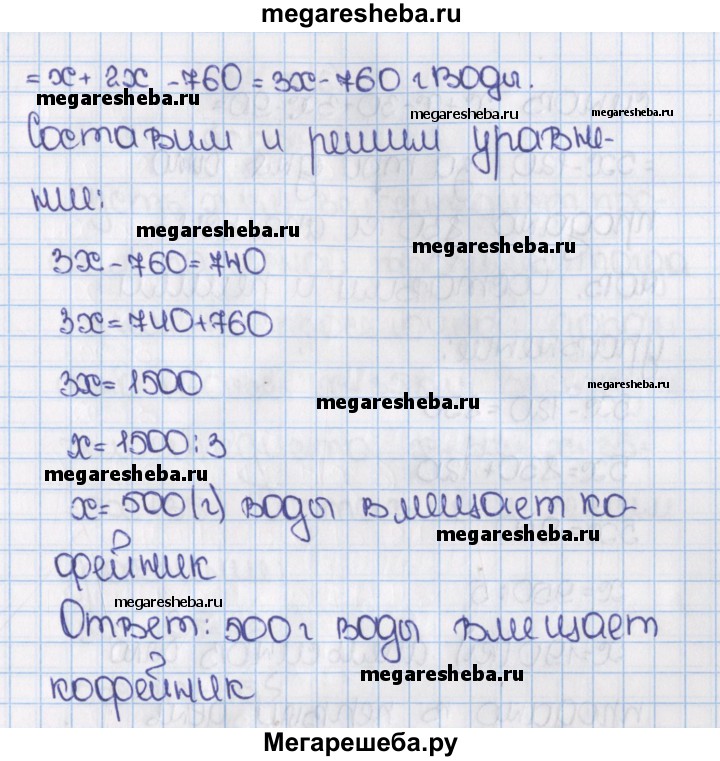 megaresheba.ru
= x + 2x - 760 = 3x - 760 г воды.
megaresheba.ru
megaresheba.ru
megaresheba.ru
Составим и решим уравне-
ние:
megaresheba.ru
megaresheba.ru
3x - 760 = 740
3x = 740 + 760
3x = 1500
megaresheba.ru
megaresheba.ru
x = 1500 : 3
megaresheba.ru
x = 500 (г) воды вмещает ко-
megaresheba.ru
фейник
megaresheba.ru
Ответ: 500 г воды вмещает
megaresheba.ru
кофейник
Мегарешеба.ру